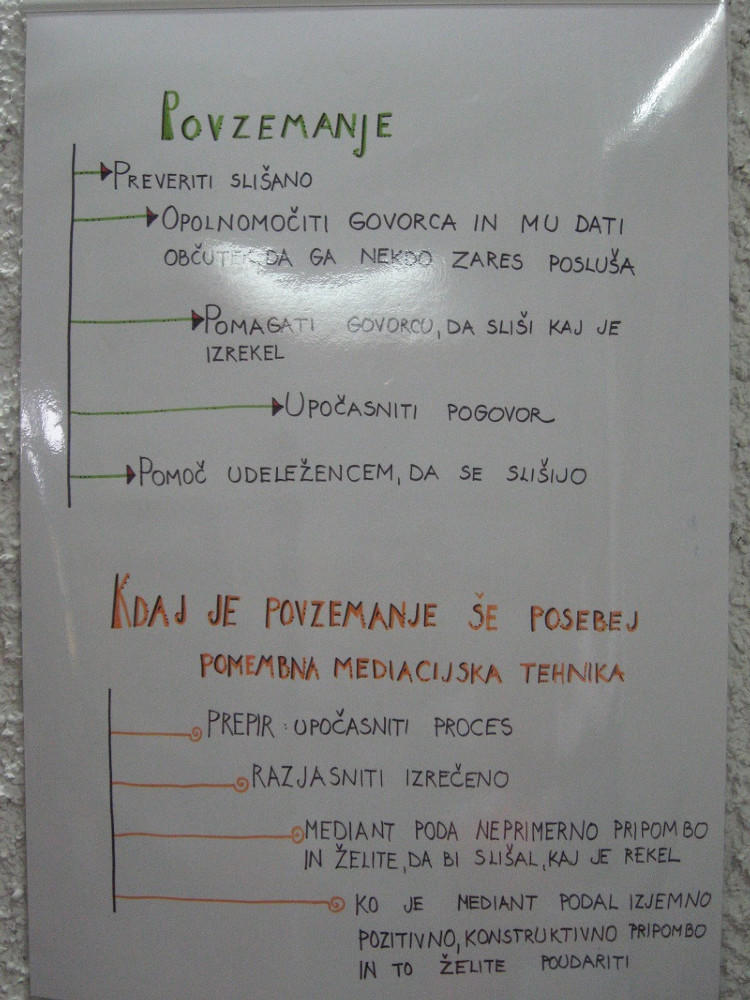 POVZEMANJE
PREVERITI SLIŠANO
OPOLNOMOČITI GOVORCA IN MU DATI
OBČUTEK, DA GA NEKDO ZARES POSLUŠA
POMAGATI GOVORCU, DA SLIŠI KAJ JE
IZREKEL
UPOČASNITI POGOVOR
POMOČ UDELEŽENCEM, DA SE SLIŠIJO
KDAJ JE POVZEMANJE ŠE POSEBEJ
POMEMBNA MEDIACIJSKA TEHNIKA
PREPIR : UPOČASNITI PROCES
RAZJASNITI IZREČENO
MEDIANT PODA NEPRIMERNO PRIPOMBO
IN ŽELITE, DA BI SLIŠAL, KAJ JE REKEL
KO JE MEDIANT PODAL IZJEMNO
POZITIVNO, KONSTRUKTIVNO PRIPOMBO
IN TO ŽELITE POUDARITI